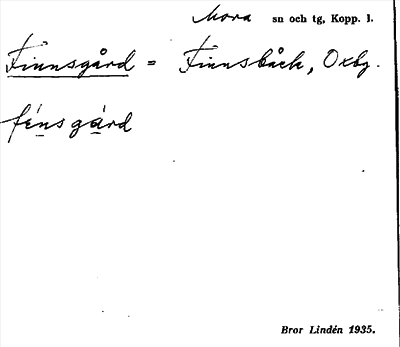 Mora sn och tg, Kopp. l.
Finnsgård = Finnsbäck, Oxbg.
fénsgård
Bror Lindén 1935.